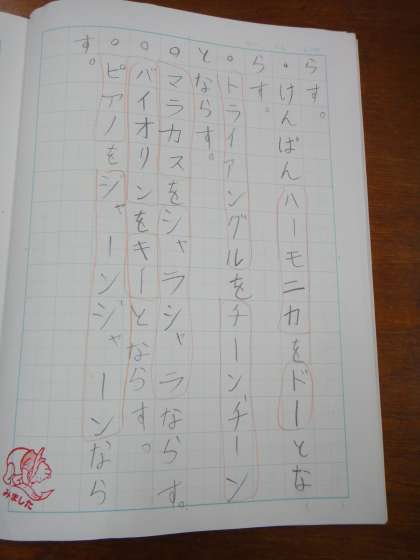 らす。
・けんばんハーモニカをドーとな
らす。
。トライアングルをチーンチーン
とならす。
。マラカスをシャラシャラならす。
。バイオリンをキーとならす。
。ピアノをジャーンジャーンなら
す。
みました